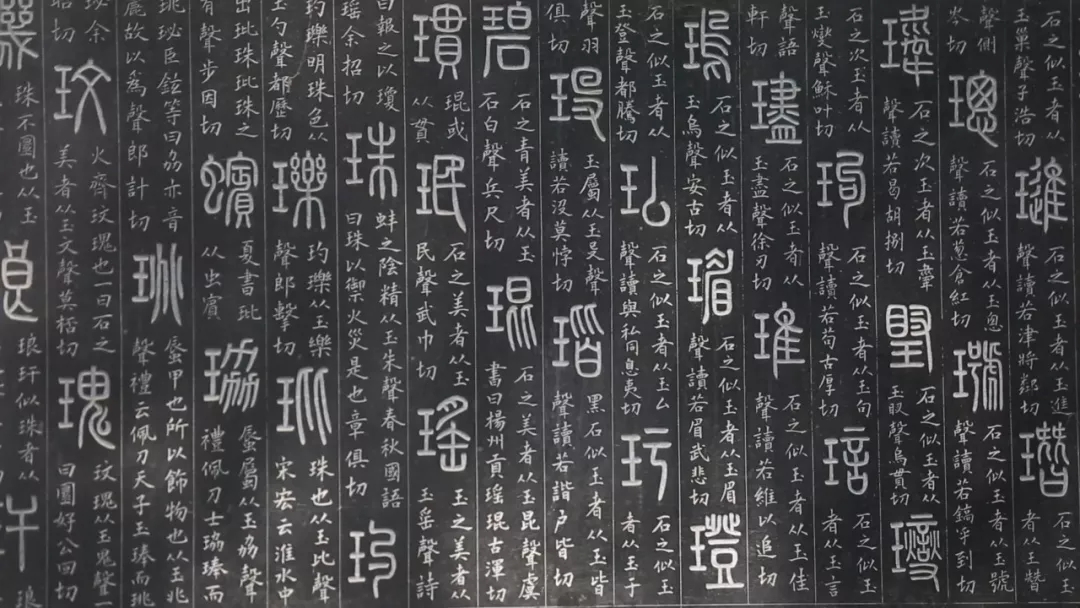 石之似玉者从
玉巢聲子浩切
璡
石之似玉者从玉進
聲讀若津將鄰切
石之似玉
者从玉朁
聲側
岑切
璁
石之似玉者从玉恖
聲讀若蔥倉紅切
石之似玉者从玉號
聲讀若鎬乎到切
石之次玉者从玉舝
聲讀若曷胡捌切
石之似玉者从
玉臤聲烏貫切
石之次玉者从
玉燮聲穌叶切
玽
石之似玉者从玉句
聲讀若苟古厚切
琂
石之似玉
者从玉言
聲語
軒切
璶
石之似玉者从
玉盡聲徐刃切
琟
石之似玉者从玉隹
聲讀若維以追切
瑦
石之似玉者从
玉烏聲安古切
瑂
石之似玉者从玉眉
聲讀若眉武悲切
璒
石之似玉者从
玉登聲都騰切
石之似玉者从玉厶
聲讀與私同息夷切
玗
石之似玉
者从玉于
聲羽
俱切
玉屬从玉𠬛聲
讀若沒莫悖切
瑎
黑石似玉者从玉皆
聲讀若諧戶皆切
碧
石之青美者从玉
石白聲兵尺切
琨
石之美者从玉昆聲虞
書曰楊州貢瑤琨古渾切
瑻
琨或
从貫
珉
石之美者从玉
民聲武巾切
瑤
玉之美者从
玉䍃聲詩
曰報之以瓊
瑤余招切
珠
蚌之陰精从玉朱聲春秋國語
曰珠以禦火災是也章俱切
玓
玓瓅明珠色从
玉勺聲都歷切
瓅
玓瓅从玉樂
聲郎擊切
玭
珠也从玉比聲
宋宏云淮水中
出玭珠玭珠之
有聲步因切
蠙
夏書玭
从虫賓
珕
蜃屬从玉劦聲
禮佩刀士珕琫而
珧珌臣鉉等曰劦亦音
麗故以為聲郎計切
珧
蜃甲也所以飾物也从玉兆
聲禮云佩刀天子玉琫而珧
珌余
昭切
玟
火齊玟瑰也一曰石之
美者从玉文聲莫桮切
瑰
玟瑰从玉鬼聲一
曰圜好公回切
珠不圜也从玉
琅玕似珠者从
琅